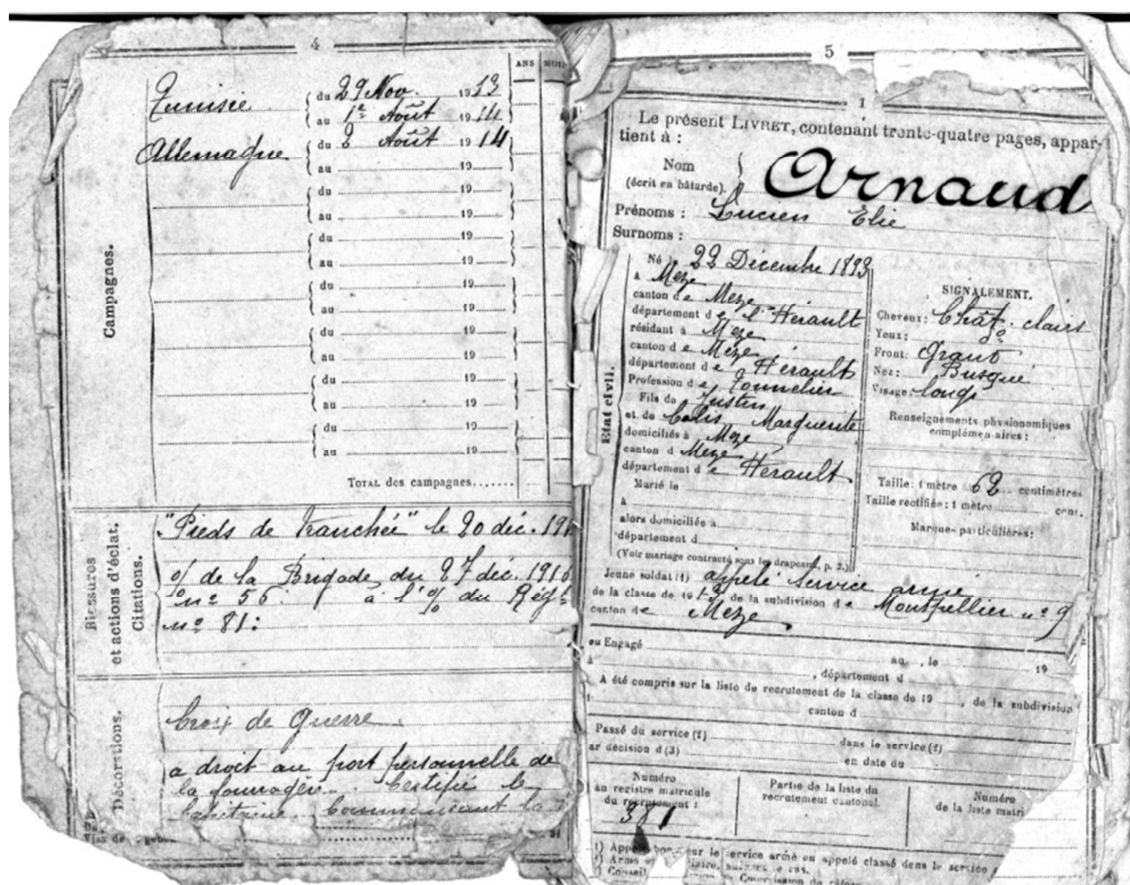 4
ANS MOIS
Campagnes.
Tunisie
du 29 Nov. 1913
au 1er Août 1914
Allemagne
du 2 Août 1914
au 19
du 19
au 19
du 19
au 19
du 19
au 19
du 19
au 19
du 19
au 19
du 19
au 19
TOTAL des campagnes.......
Blessures
et actions d'éclat.
Citations.
"Pieds de tranchée" le 20 déc. 191
o/ de la Brigade du 27 déc. 1916
nº 56. à l'o/ du Régt
nº 81:
Décorations.
Croix de Guerre
a droit au port personnelle de
la fourragère. Certifié le
Capitaine Commandant la
5
1
Le présent LIVRET, contenant trente-quatre pages, appar-
tient à :
Nom
(écrit en bâtarde).
Arnaud
Prénoms : Lucien Elie
Surnoms :
Etat civil.
Né 22 Décembre 1893
à Mèze
canton de Mèze
département de l'Hérault
résidant à Mèze
canton de Mèze
département de Hérault
Profession de Tonnelier
Fils de Justin
et de Marguerite
domiciliés à Mèze
canton de Mèze
département de Hérault
Marié le
à
alors domiciliée à
département d
(Voir mariage contracté sous les drapeaux, p. 2.)
SIGNALEMENT.
Cheveux : Chât. clairs
Yeux : do
Front : Grand
Nez : Busqué
Visage : long
Renseignements physionomiques
complémentaires :
Taille : 1 mètre 62 centimètres
Taille rectifiée : 1 mètre cent.
Marques particulières :
Jeune soldat (1) appelé service armé
de la classe de 1913 de la subdivision de Montpellier nº 9
canton de Mèze
ou Engagé au , le 19
à , département d
A été compris sur la liste de recrutement de la classe de 19 , de la subdivision
canton d
Passé du service (1) dans le service (1)
ar décision d (3) en date du
Numéro
au registre matricule
du recrutement :
381
Partie de la liste du
recrutement cantonal.
Numéro
de la liste matri
1) Appelé bon pour le service armé ou appelé classé dans le service